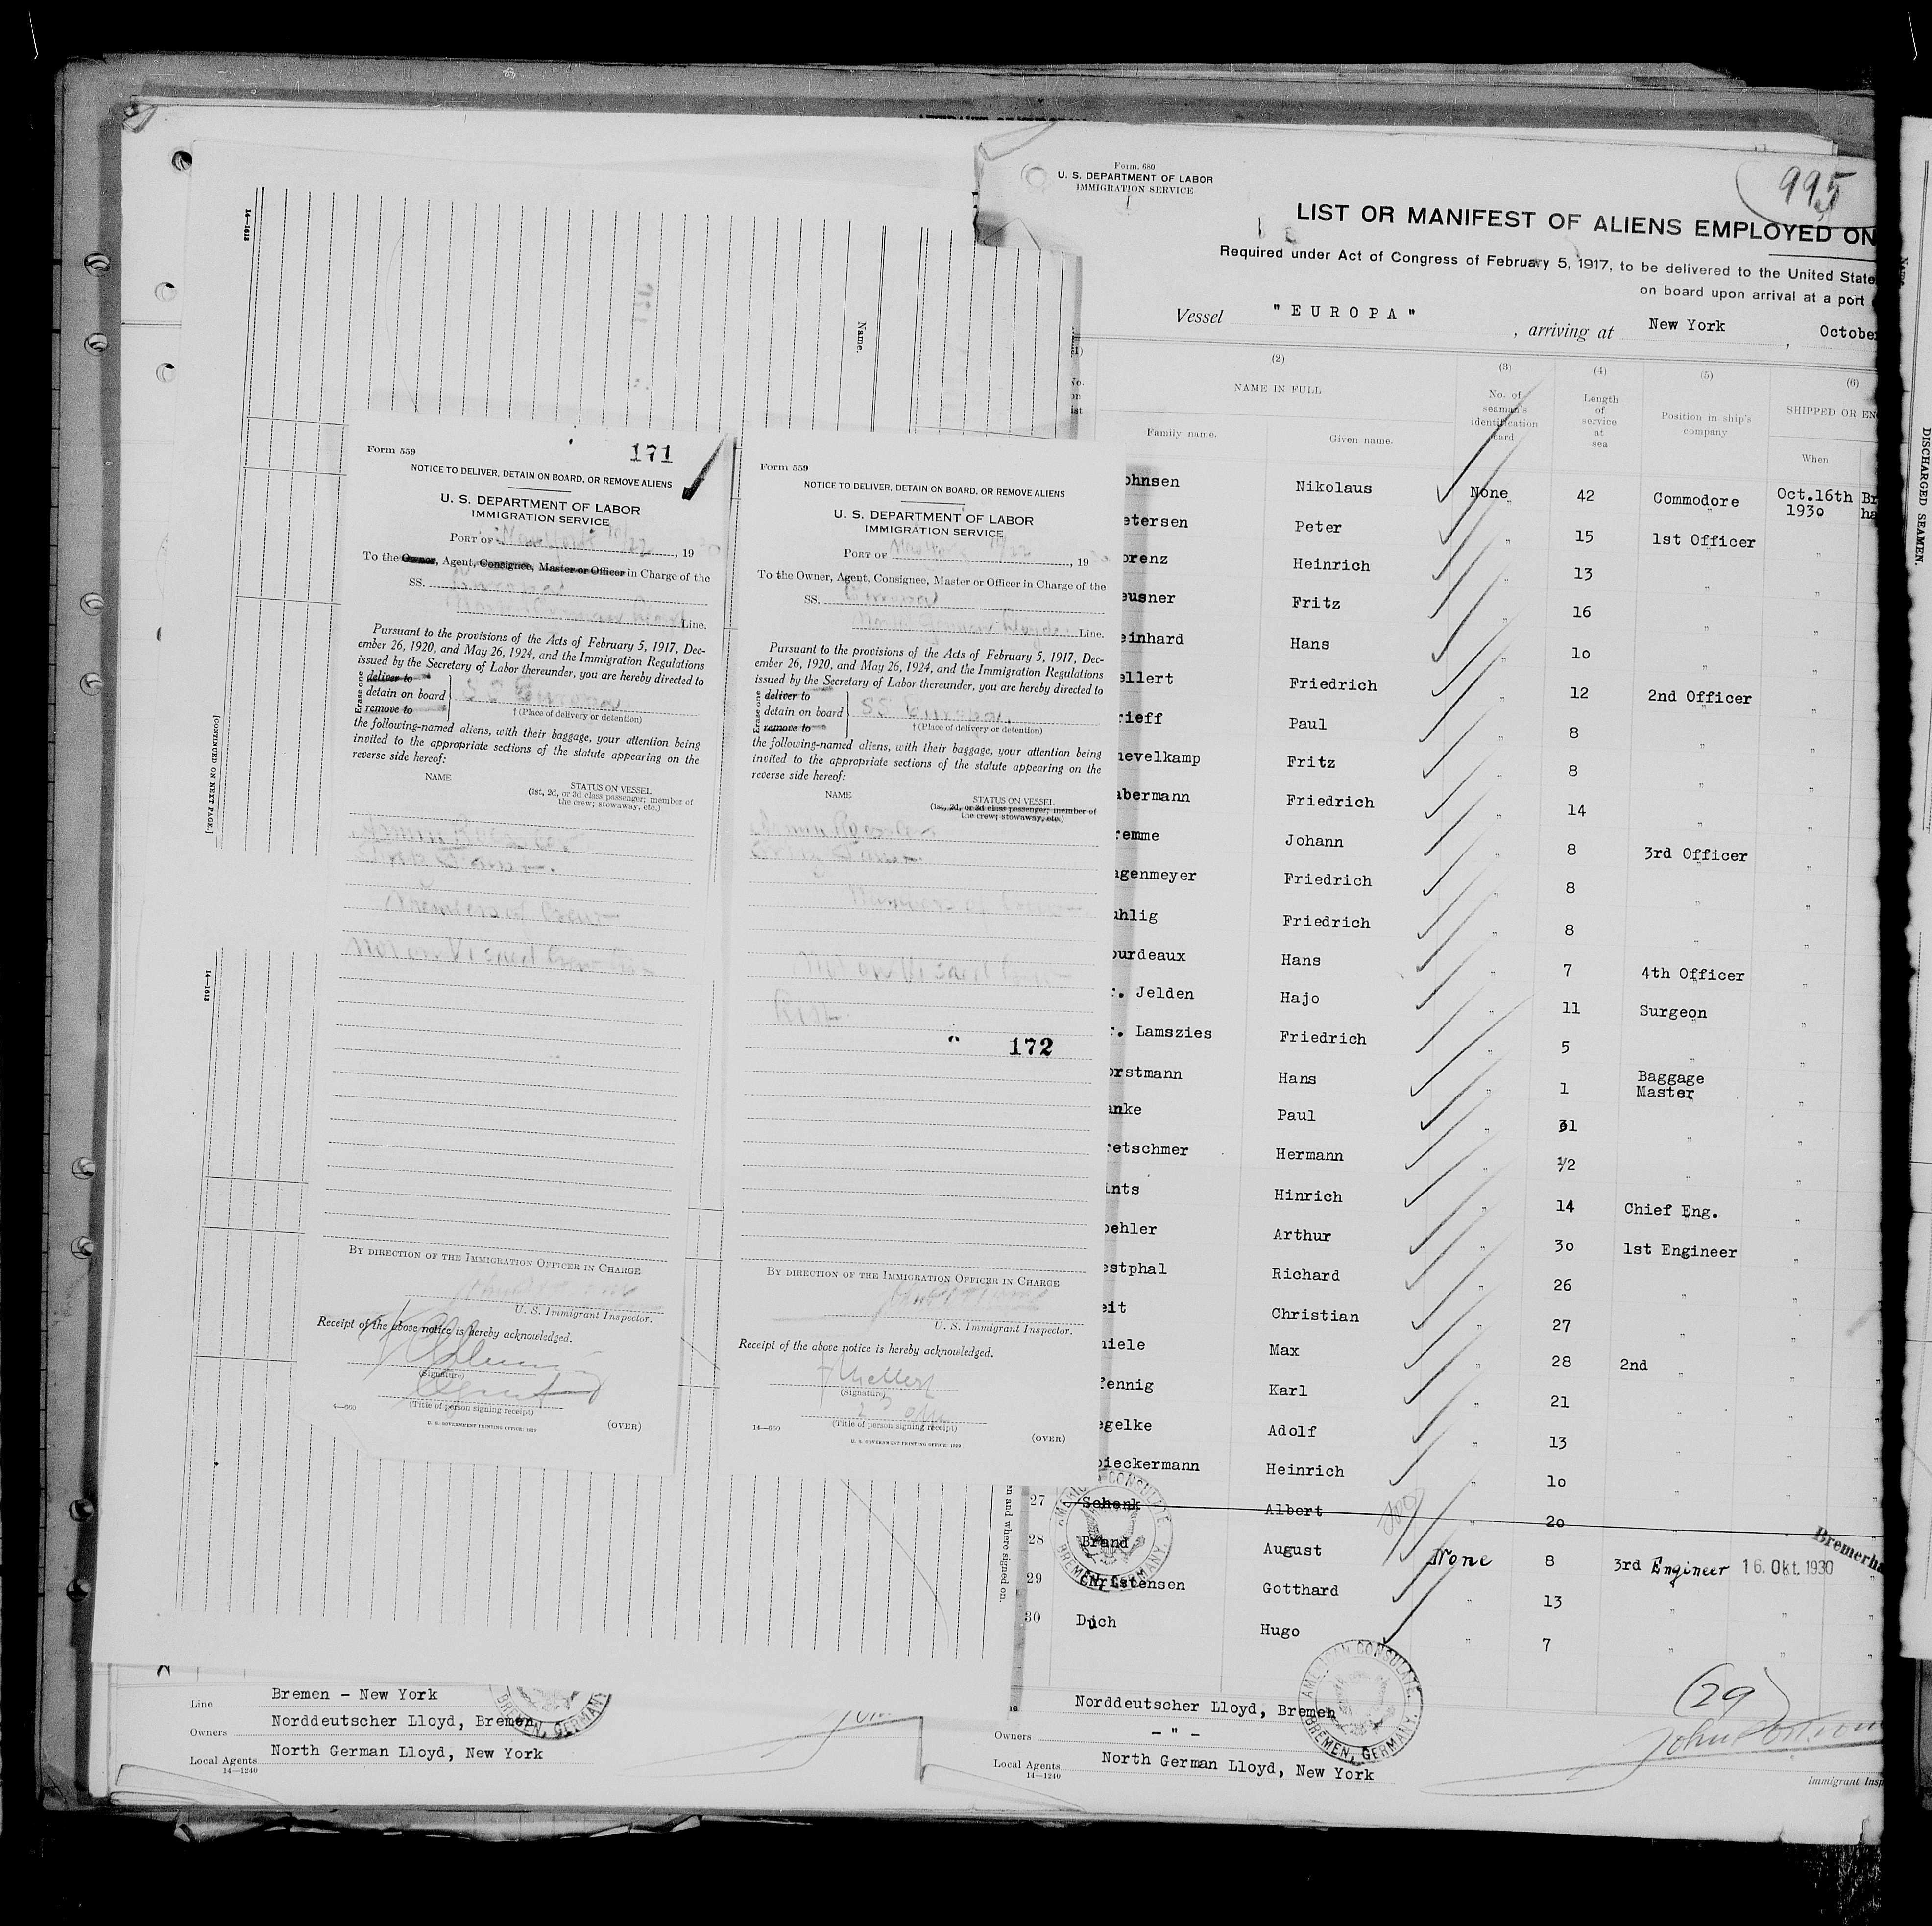 14—1613
Name.
[CONTINUED ON NEXT PAGE.]
14—1613
Form 559
171
NOTICE TO DELIVER, DETAIN ON BOARD, OR REMOVE ALIENS
U. S. DEPARTMENT OF LABOR
IMMIGRATION SERVICE
PORT OF New York 10/22, 1930
To the Owner, Agent, Consignee, Master or Officer in Charge of the
SS. Europa
North German Lloyd Line.
Pursuant to the provisions of the Acts of February 5, 1917, Dec-
ember 26, 1920, and May 26, 1924, and the Immigration Regulations
issued by the Secretary of Labor thereunder, you are hereby directed to
Erase one
deliver to
detain on board
remove to
S S Europa
† (Place of delivery or detention)
the following-named aliens, with their baggage, your attention being
invited to the appropriate sections of the statute appearing on the
reverse side hereof:
NAME
STATUS ON VESSEL
(1st, 2d, or 3d class passenger; member of
the crew; stowaway, etc.)
Members of Crew
Not on Visaed Crew List
BY DIRECTION OF THE IMMIGRATION OFFICER IN CHARGE
U. S. Immigrant Inspector.
Receipt of the above notice is hereby acknowledged.
(Signature)
Agent
(Title of person signing receipt)
4—660
U. S. GOVERNMENT PRINTING OFFICE: 1929
(OVER)
Form 559
NOTICE TO DELIVER, DETAIN ON BOARD, OR REMOVE ALIENS
U. S. DEPARTMENT OF LABOR
IMMIGRATION SERVICE
PORT OF New York 10/22, 1930
To the Owner, Agent, Consignee, Master or Officer in Charge of the
SS. Europa
North German Lloyd Line.
Pursuant to the provisions of the Acts of February 5, 1917, Dec-
ember 26, 1920, and May 26, 1924, and the Immigration Regulations
issued by the Secretary of Labor thereunder, you are hereby directed to
Erase one
deliver to
detain on board
remove to
SS Europa
† (Place of delivery or detention)
the following-named aliens, with their baggage, your attention being
invited to the appropriate sections of the statute appearing on the
reverse side hereof:
NAME
STATUS ON VESSEL
(1st, 2d, or 3d class passenger; member of
the crew; stowaway, etc.)
Members of Crew
Not on Visaed Crew
List
172
BY DIRECTION OF THE IMMIGRATION OFFICER IN CHARGE
U. S. Immigrant Inspector.
Receipt of the above notice is hereby acknowledged.
(Signature)
(Title of person signing receipt)
14—660
U. S. GOVERNMENT PRINTING OFFICE: 1929
(OVER)
Form. 680
U. S. DEPARTMENT OF LABOR
IMMIGRATION SERVICE
995
LIST OR MANIFEST OF ALIENS EMPLOYED ON
Required under Act of Congress of February 5, 1917, to be delivered to the United State
on board upon arrival at a port
Vessel "EUROPA", arriving at New York, Octobe
(2) (3) (4) (5) (6)
NAME IN FULL
No. of seaman's identification card
Length of service at sea
Position in ship's company
SHIPPED OR EN
Family name. Given name. When
ohnsen Nikolaus None 42 Commodore Oct.16th Br
1930 ha
etersen Peter " 15 1st Officer "
orenz Heinrich " 13 " "
eusner Fritz " 16 " "
einhard Hans " 10 " "
ellert Friedrich " 12 2nd Officer "
rieff Paul " 8 " "
hevelkamp Fritz " 8 " "
abermann Friedrich " 14 " "
remme Johann " 8 3rd Officer "
agenmeyer Friedrich " 8 " "
uhlig Friedrich " 8 " "
ourdeaux Hans " 7 4th Officer "
r. Jelden Hajo " 11 Surgeon "
r. Lamszies Friedrich " 5 " "
orstmann Hans " 1 Baggage Master "
anke Paul " 31 " "
retschmer Hermann " 1/2 " "
ints Hinrich " 14 Chief Eng. "
oehler Arthur " 30 1st Engineer "
estphal Richard " 26 " "
eit Christian " 27 " "
hiele Max " 28 2nd " "
fennig Karl " 21 " "
egelke Adolf " 13 " "
pieckermann Heinrich " 10 " "
27 Schenk Albert 20 "
28 Brand August None 8 3rd Engineer 16. Okt. 1930 Bremerha
29 Christensen Gotthard " 13 " "
30 Duch Hugo " 7 " "
AMERICAN CONSULATE.
BREMEN, GERMANY.
AMERICAN CONSULATE.
BREMEN, GERMANY.
(29)
Norddeutscher Lloyd, Bremen
Owners — " —
Local Agents North German Lloyd, New York
14—1240
Immigrant Insp
Line Bremen - New York
Owners Norddeutscher Lloyd, Bremen
Local Agents North German Lloyd, New York
14—1240
BREMEN, GERMANY
en and where signed on.
DISCHARGED SEAMEN.